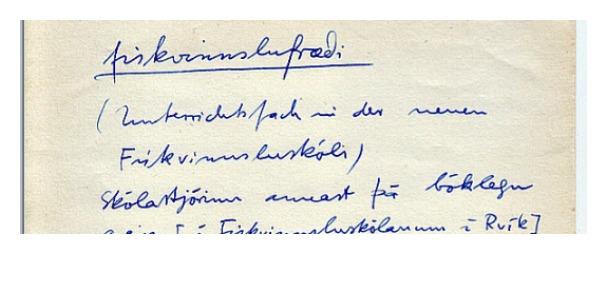 fiskvinnslufræði
(Unterrichtsfach in der neuen
Fiskvinnsluskóli)
Skólastjórinn annast þá bóklegu
[í Fiskvinnsluskólanum í Rvík]